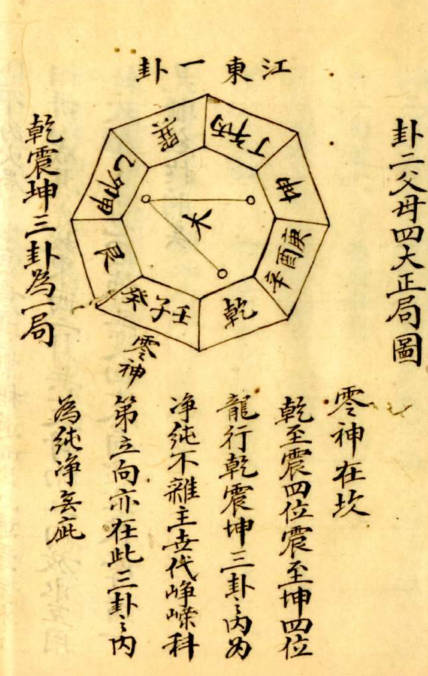 卦二父母四大正局圖
江東一卦
巽
丁午丙
坤
庚酉辛
乾
壬子癸
艮
甲卯乙
大
零神
乾震坤三卦為一局
零神在坎
乾至震四位震至坤四位
龍行乾震坤三卦之內為
净純不雜主世代崢嶸科
第立向亦在此三卦之內
為純净無疵